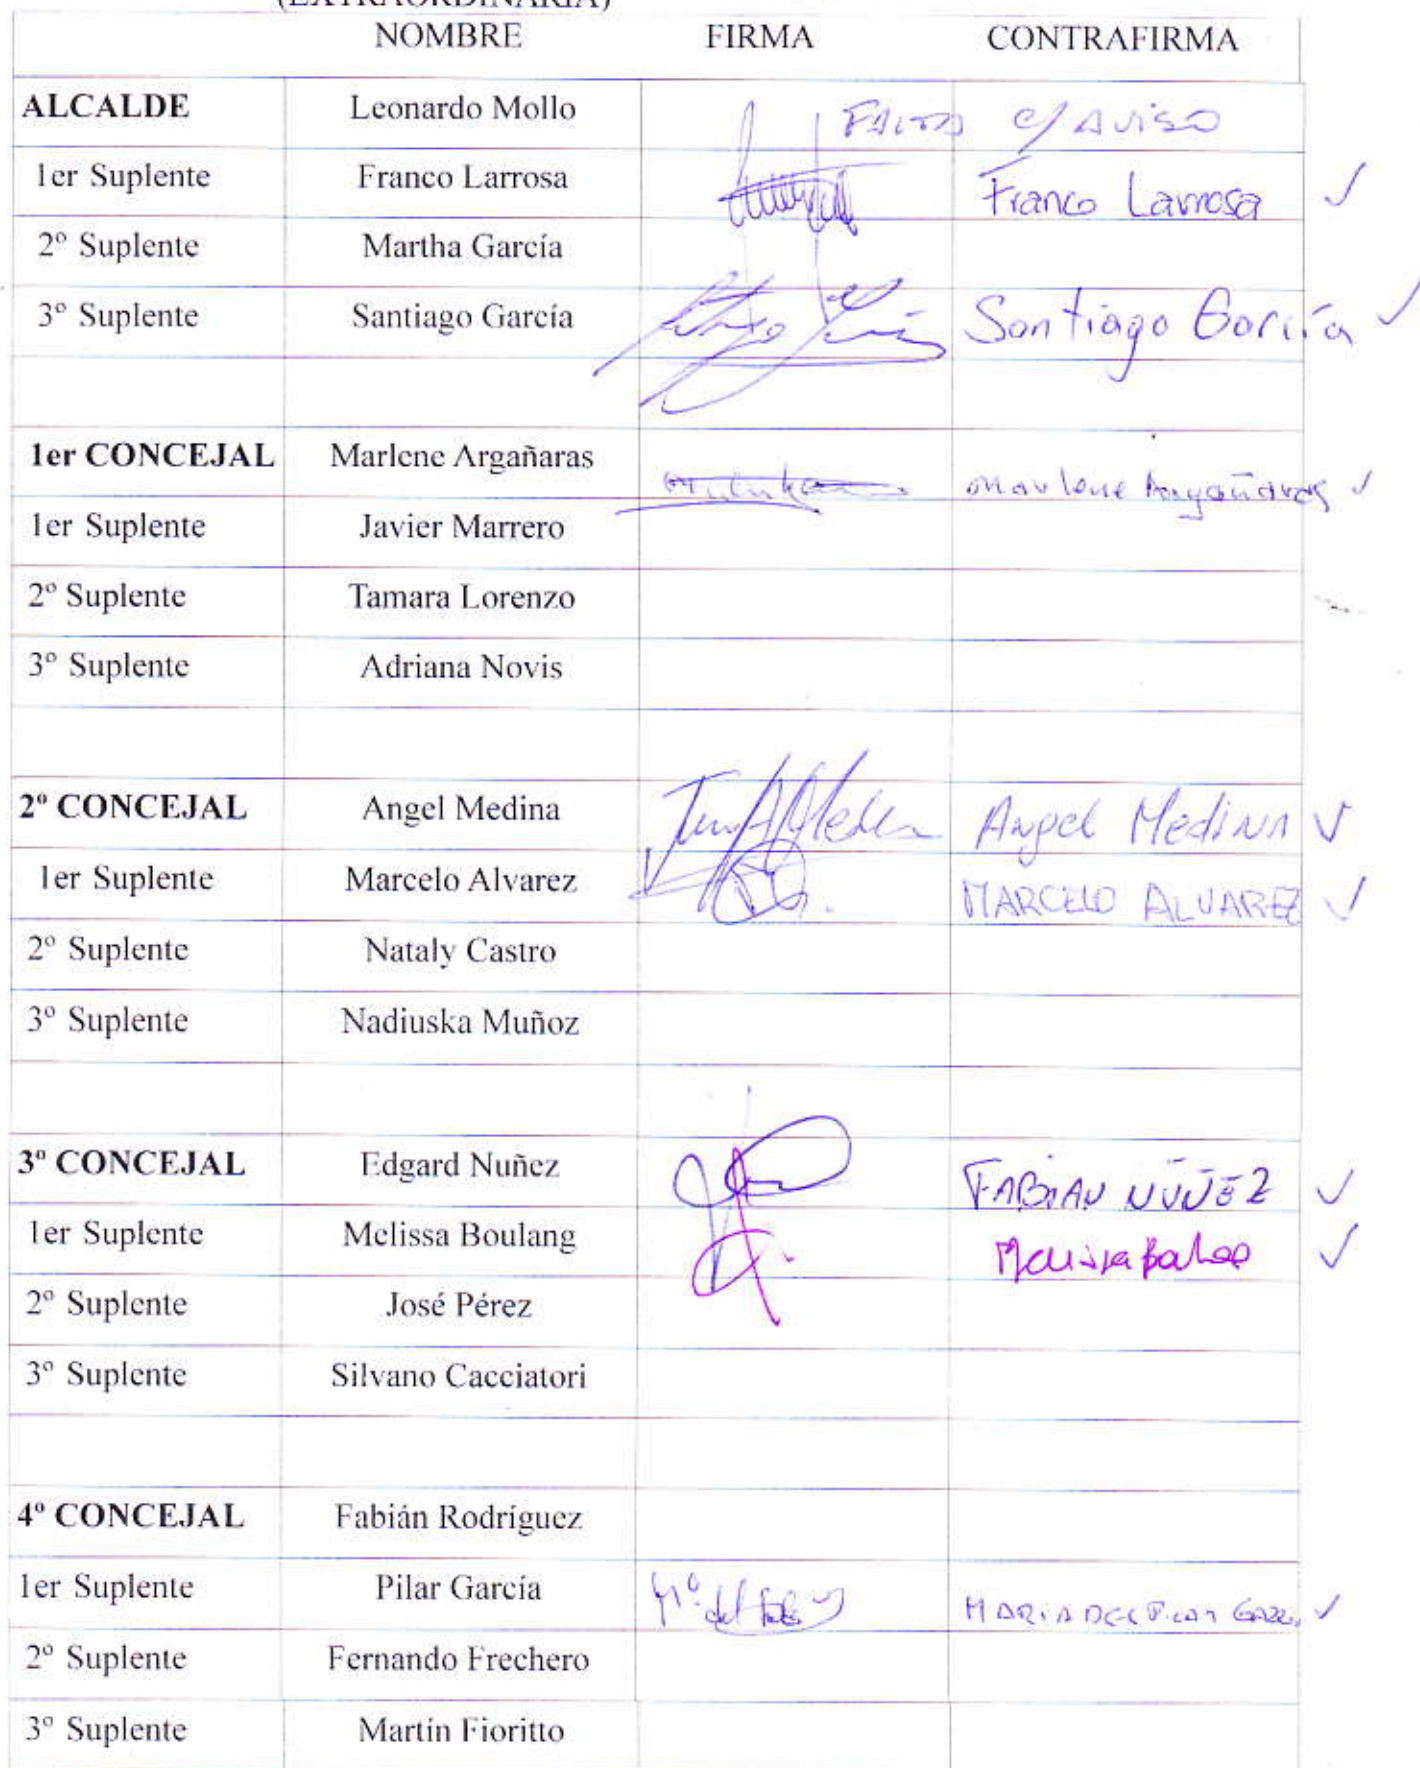 (EXTRAORDINARIA)
NOMBRE FIRMA CONTRAFIRMA
ALCALDE Leonardo Mollo Falta c/ Aviso
1er Suplente Franco Larrosa Franco Larrosa ✓
2º Suplente Martha García
3º Suplente Santiago García Santiago García ✓
1er CONCEJAL Marlene Argañaras Marlene Argañaras ✓
1er Suplente Javier Marrero
2º Suplente Tamara Lorenzo
3º Suplente Adriana Novis
2º CONCEJAL Angel Medina Angel Medina ✓
1er Suplente Marcelo Alvarez MARCELO ALVAREZ ✓
2º Suplente Nataly Castro
3º Suplente Nadiuska Muñoz
3º CONCEJAL Edgard Nuñez FABIAN NUÑEZ ✓
1er Suplente Melissa Boulang Melissa ✓
2º Suplente José Pérez
3º Suplente Silvano Cacciatori
4º CONCEJAL Fabián Rodríguez
1er Suplente Pilar García Mª del MARIA DEL PILAR ✓
2º Suplente Fernando Frechero
3º Suplente Martín Fioritto